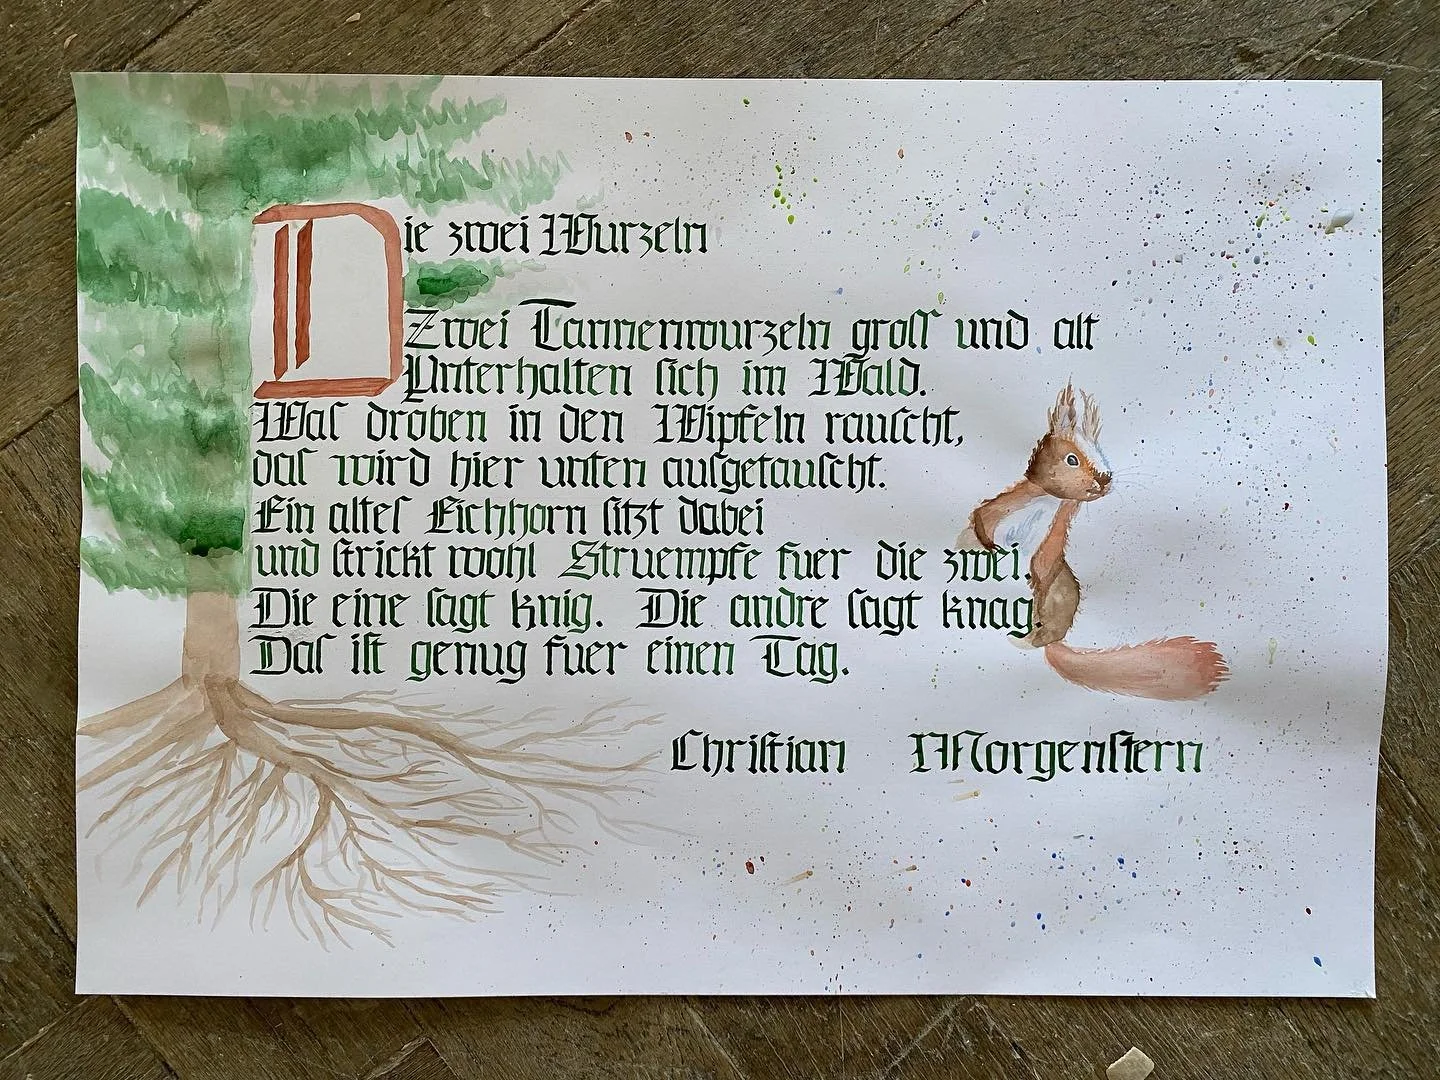 Die zwei Wurzeln
Zwei Tannenwurzeln groſſ und alt
Unterhalten ſich im Wald.
Waſ droben in den Wipfeln rauſcht,
daſ wird hier unten auſgetauſcht.
Ein alteſ Eichhorn ſitzt dabei
und ſtrickt wohl Struempfe fuer die zwei.
Die eine ſagt knig. Die andre ſagt knag.
Daſ iſt genug fuer einen Tag.
Chriſtian Morgenſtern